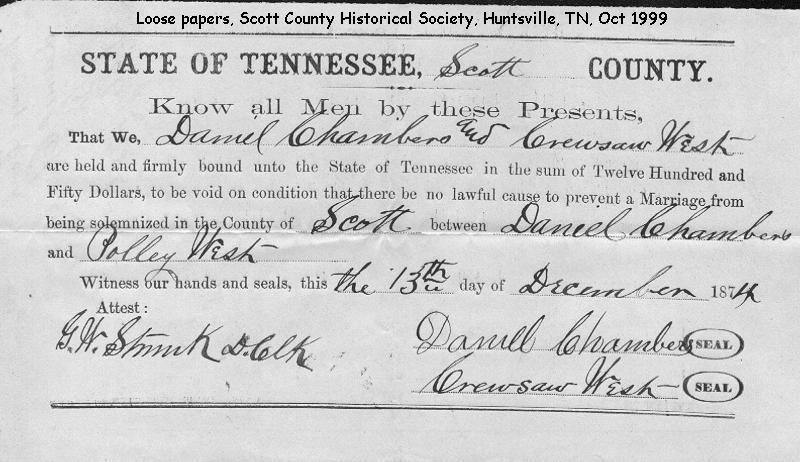 Loose papers, Scott County Historical Society, Huntsville, TN, Oct 1999
STATE OF TENNESSEE, Scott COUNTY.
Know all Men by these Presents,
That We, Daniel Chambers and Crewsaw West
are held and firmly bound unto the State of Tennessee in the sum of Twelve Hundred and
Fifty Dollars, to be void on condition that there be no lawful cause to prevent a Marriage from
being solemnized in the County of Scott between Daniel Chambers
and Polley West
Witness our hands and seals, this the 13th day of December 1874
Attest:
G.W. Strunk D. Clk
Daniel Chambers SEAL
Crewsaw West SEAL